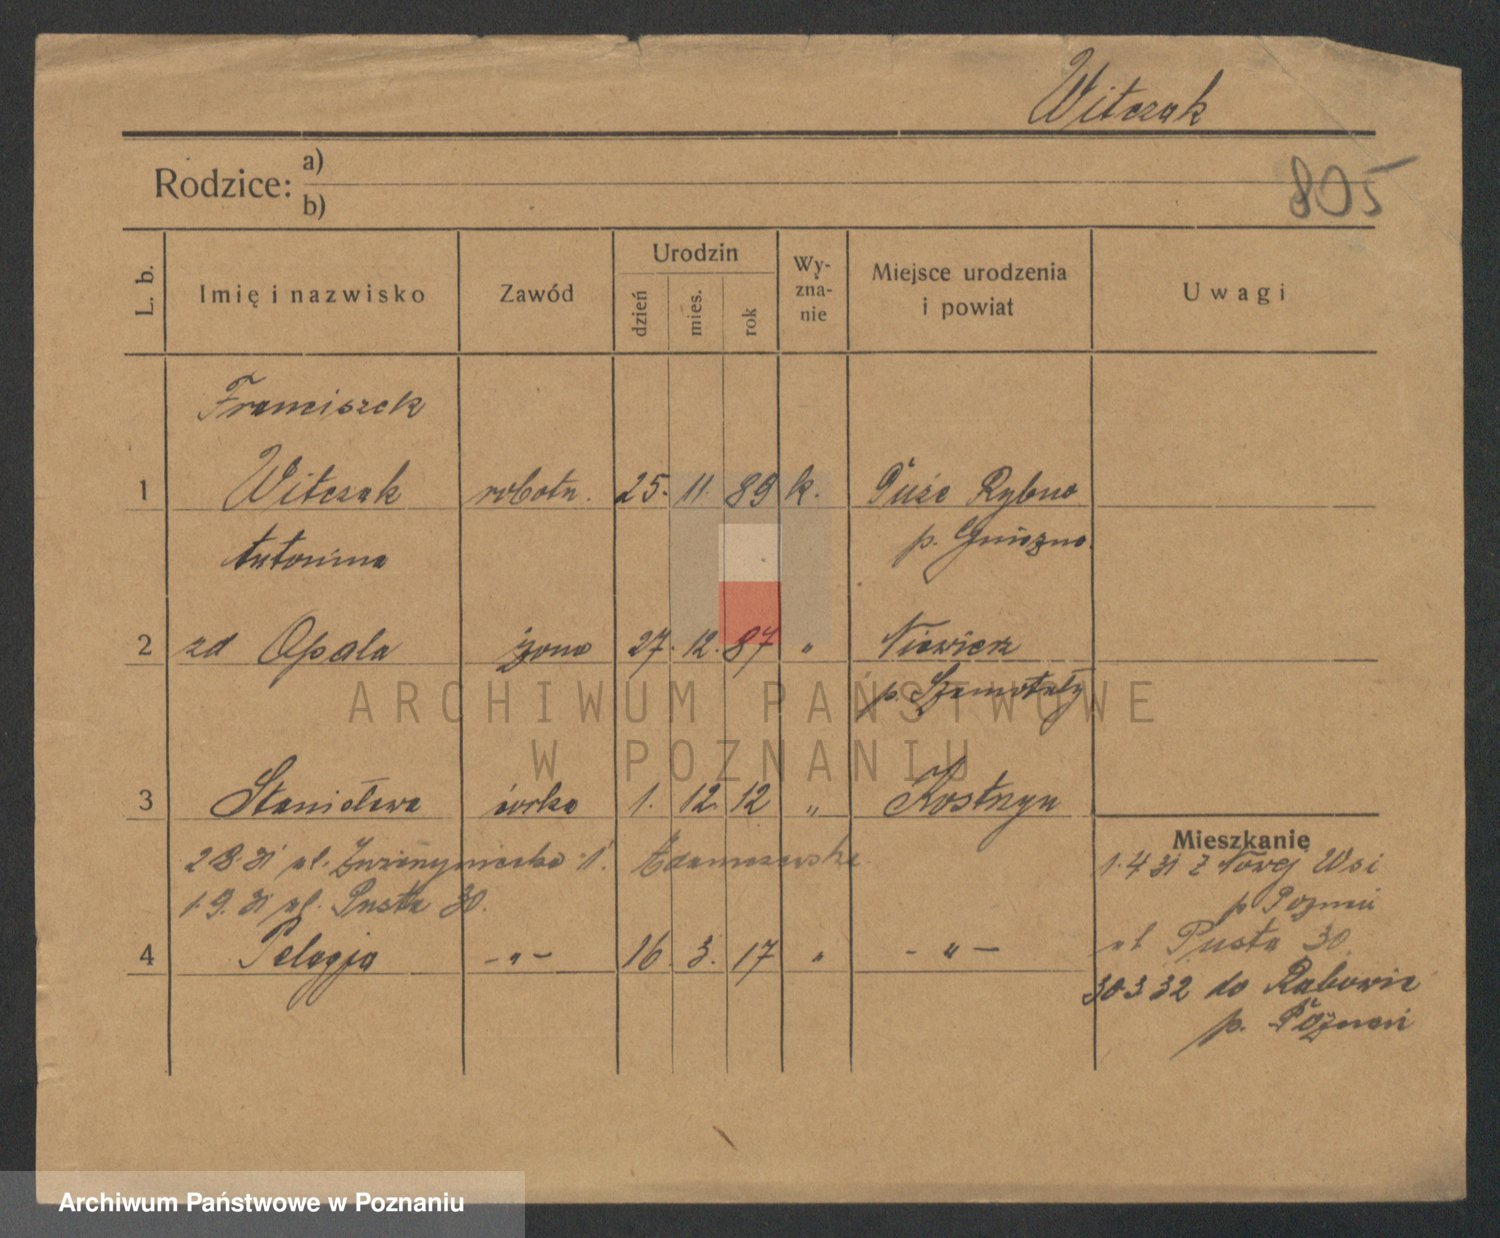 Witczak
805
Rodzice: a)
b)
L. b.
Imię i nazwisko
Zawód
Urodzin
dzień
mies.
rok
Wy-
zna-
nie
Miejsce urodzenia
i powiat
Uwagi
Franciszek
1 Witczak robotn. 25. 11. 89 k. Duże Rybno
p. Gniezno
Antonina
2 zd Opala żona 27. 12. 87 " Niewierz
p. Szamotuły
3 Stanisława córka 1. 12. 12 " Kostrzyn
Mieszkanie
2 8. 31 ul. Zwierzyniecka 1.
1. 4 31 z Nowej Wsi
p Poznań
1. 9. 31 ul. Pusta 30.
4 Pelagja - " - 16. 3. 17 " - " -
ul Pusta 30
30 3 32 do Rabowic
p. Poznań
ARCHIWUM PAŃSTWOWE
W POZNANIU
Archiwum Państwowe w Poznaniu